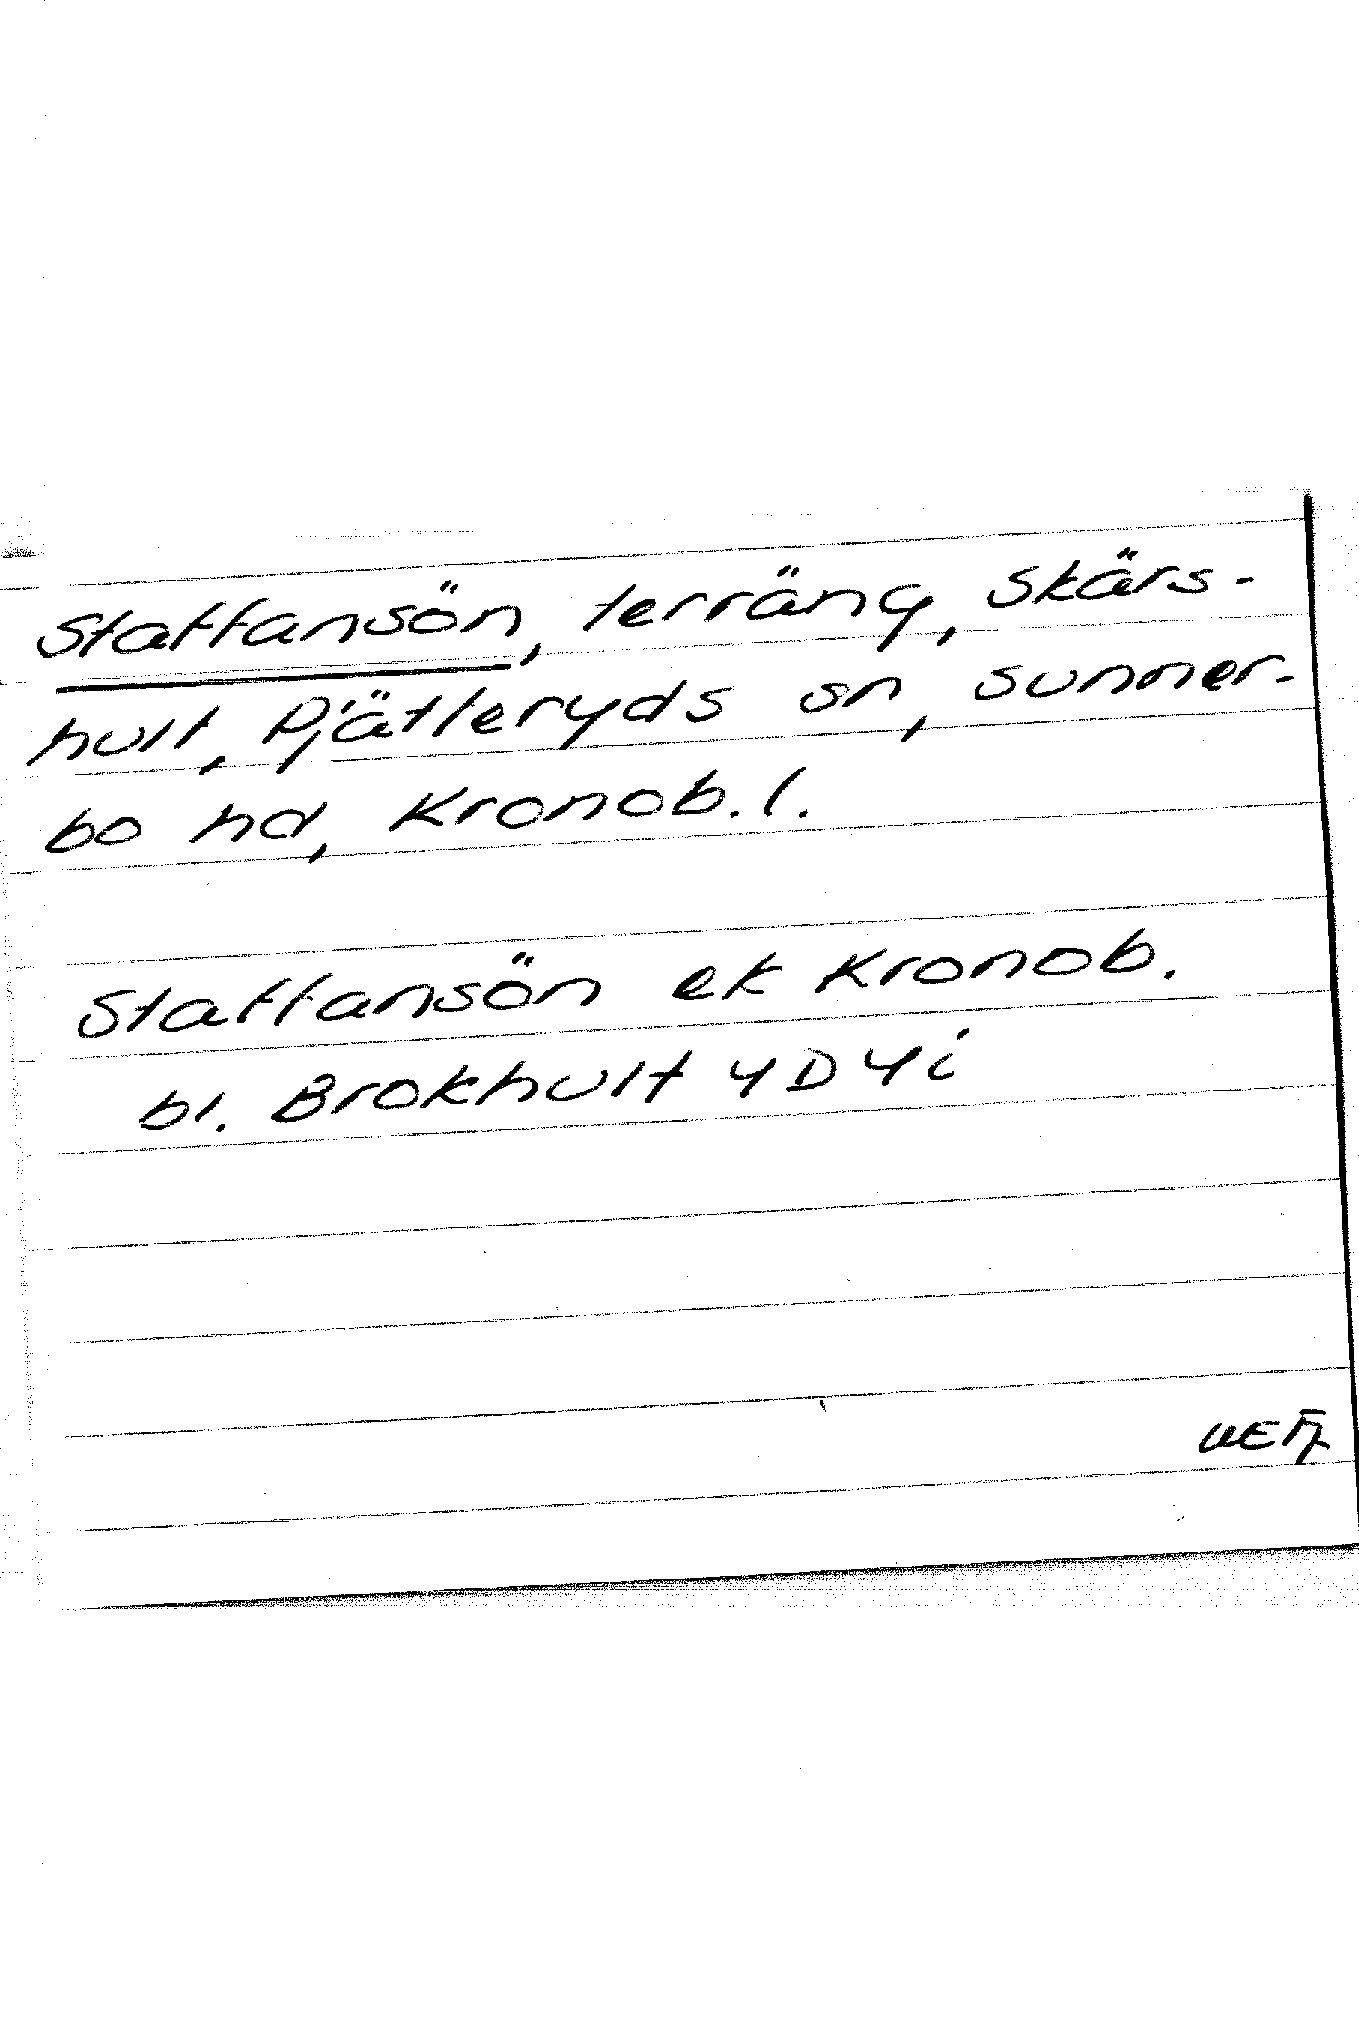 Staffansön, terräng, Skärs-
hult, Pjätteryds sn, Sunner-
bo hd, Kronob. l.
Staffansön ek Kronob.
bl. Brokhult 4D4i